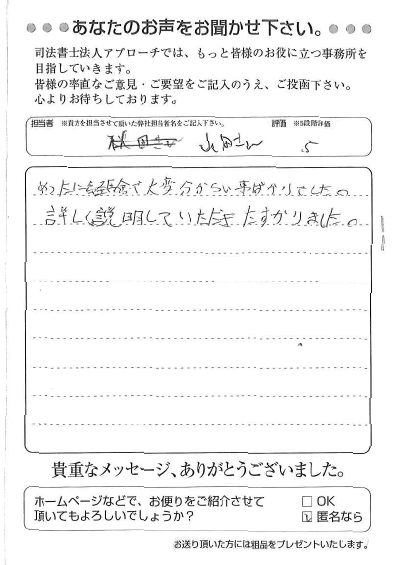 あなたのお声をお聞かせ下さい。
司法書士法人アプローチでは、もっと皆様のお役に立つ事務所を
目指していきます。
皆様の率直なご意見・ご要望をご記入のうえ、ご投函下さい。
心よりお待ちしております。
担当者 ※貴方を担当させて頂いた弊社担当者名をご記入下さい。 評価 ※5段階評価
山田さん 5
大変分からない事ばかりでした。
詳しく説明していただきたすかりました。
貴重なメッセージ、ありがとうございました。
ホームページなどで、お便りをご紹介させて
頂いてもよろしいでしょうか?
□ OK
☑ 匿名なら
お送り頂いた方には粗品をプレゼントいたします。